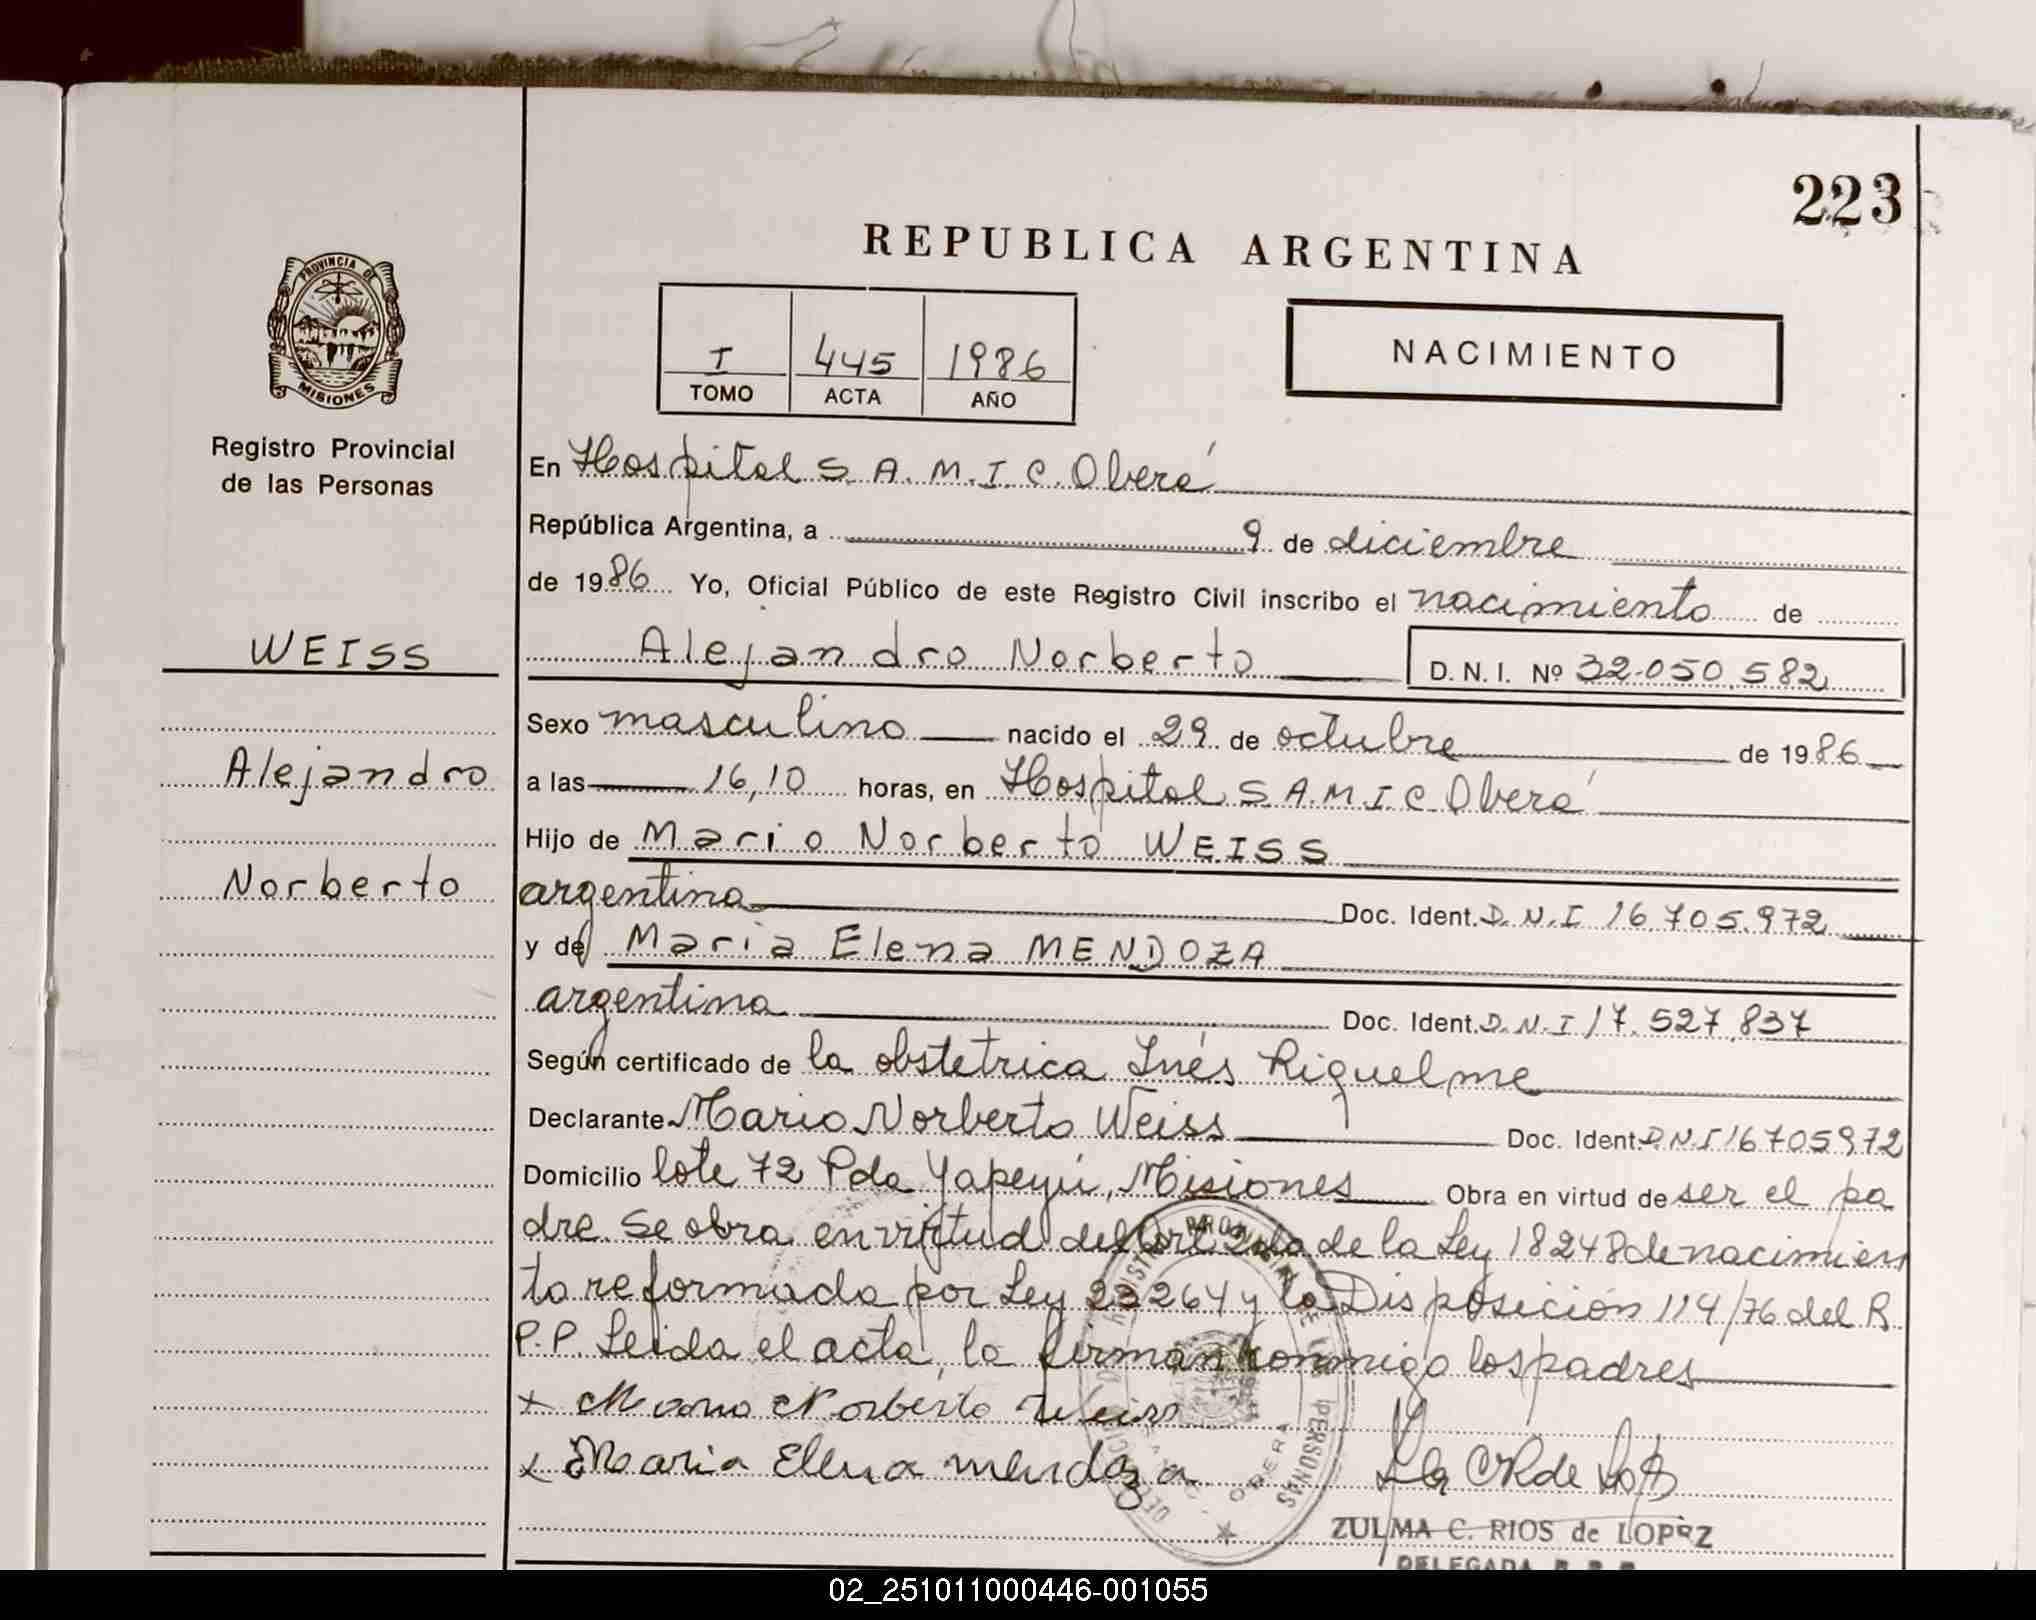 223
REPUBLICA ARGENTINA
PROVINCIA DE
MISIONES
Registro Provincial
de las Personas
I 445 1986
TOMO ACTA AÑO
NACIMIENTO
En Hospital S.A.M.I.C. Oberá
República Argentina, a 9 de diciembre
de 1986 Yo, Oficial Público de este Registro Civil inscribo el nacimiento de
WEISS
Alejandro Norberto D. N. I. Nº 32.050.582
Sexo masculino nacido el 29 de octubre de 1986
Alejandro
a las 16,10 horas, en Hospital S.A.M.I.C. Oberá
Hijo de Mario Norberto WEISS
Norberto
argentina Doc. Ident. D.N.I 16.705.972
y de Maria Elena MENDOZA
argentina Doc. Ident. D.N.I 17.527.837
Según certificado de la obstetrica Inés Riquelme
Declarante Mario Norberto Weiss Doc. Ident. D.N.I 16705972
Domicilio lote 72 Pda Yapeyú, Misiones Obra en virtud de ser el pa
dre. Se obra en virtud del Art. 2do de la Ley 18248 de nacimien
to reformada por Ley 23264 y la Disposición 114/76 del R.
P.P. Leida el acta, la firman conmigo los padres
x Mario Norberto Weiss
x Maria Elena mendoza
ZULMA C. RIOS de LOPEZ
DELEGADA
02_251011000446-001055